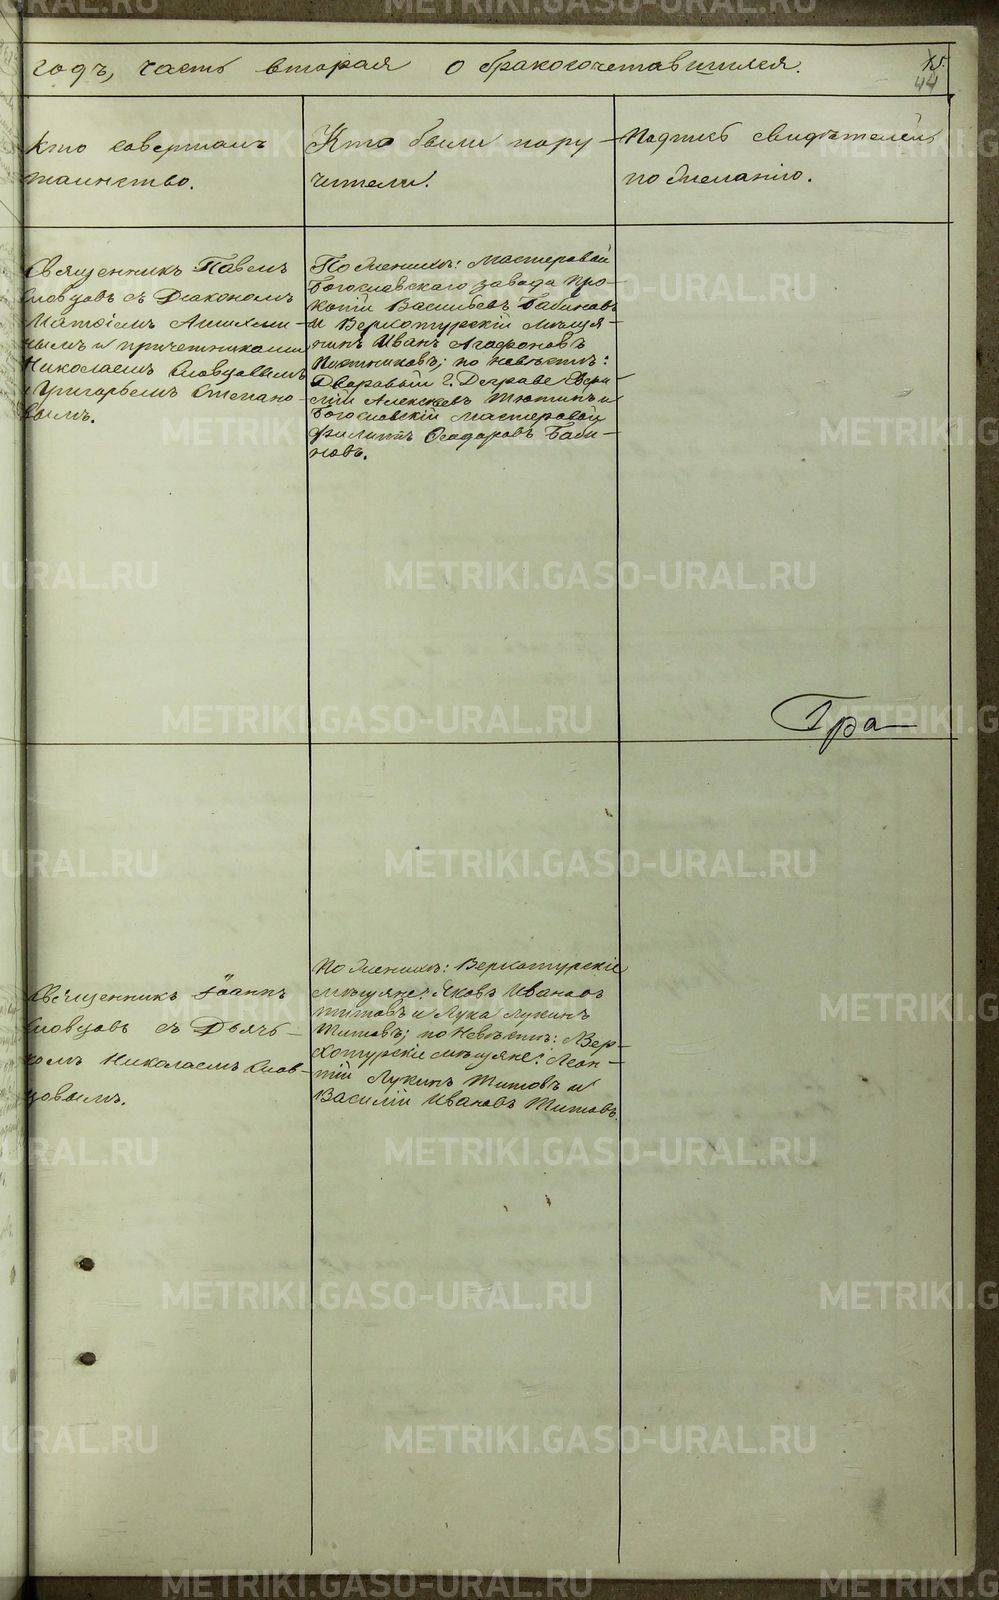 годъ, часть вторая о бракосочетавшихся.
44
Кто совершалъ
таинство.
Кто были пору-
чители.
Подпись свидѣтелей
по желанію.
Священникъ Павелъ
Словцовъ съ Діакономъ
и причетниками
Николаемъ Словцовымъ
и Григорьемъ Степано-
вымъ.
По женихѣ: Мастеровой
Богословскаго завода Про-
копій Васильевъ Бабиновъ
и Верхотурскій мѣща-
нинъ Иванъ Агафоновъ
по невѣстѣ:
Дворовый г. Деграве
Алексѣевъ и
Богословскій мастеровой
Филиппъ Ѳеодоровъ Баби-
новъ.
Гра-
Священникъ Іоаннъ
Словцовъ съ Дьяч-
комъ Николаемъ Слов-
цовымъ.
По женихѣ: Верхотурскіе
мѣщане: Яковъ Ивановъ
Титовъ и Лука Лукинъ
Титовъ; по Невѣстѣ: Вер-
хотурскіе мѣщане: Леон-
тій Лукинъ Титовъ и
Василій Ивановъ Титовъ.
METRIKI.GASO-URAL.RU